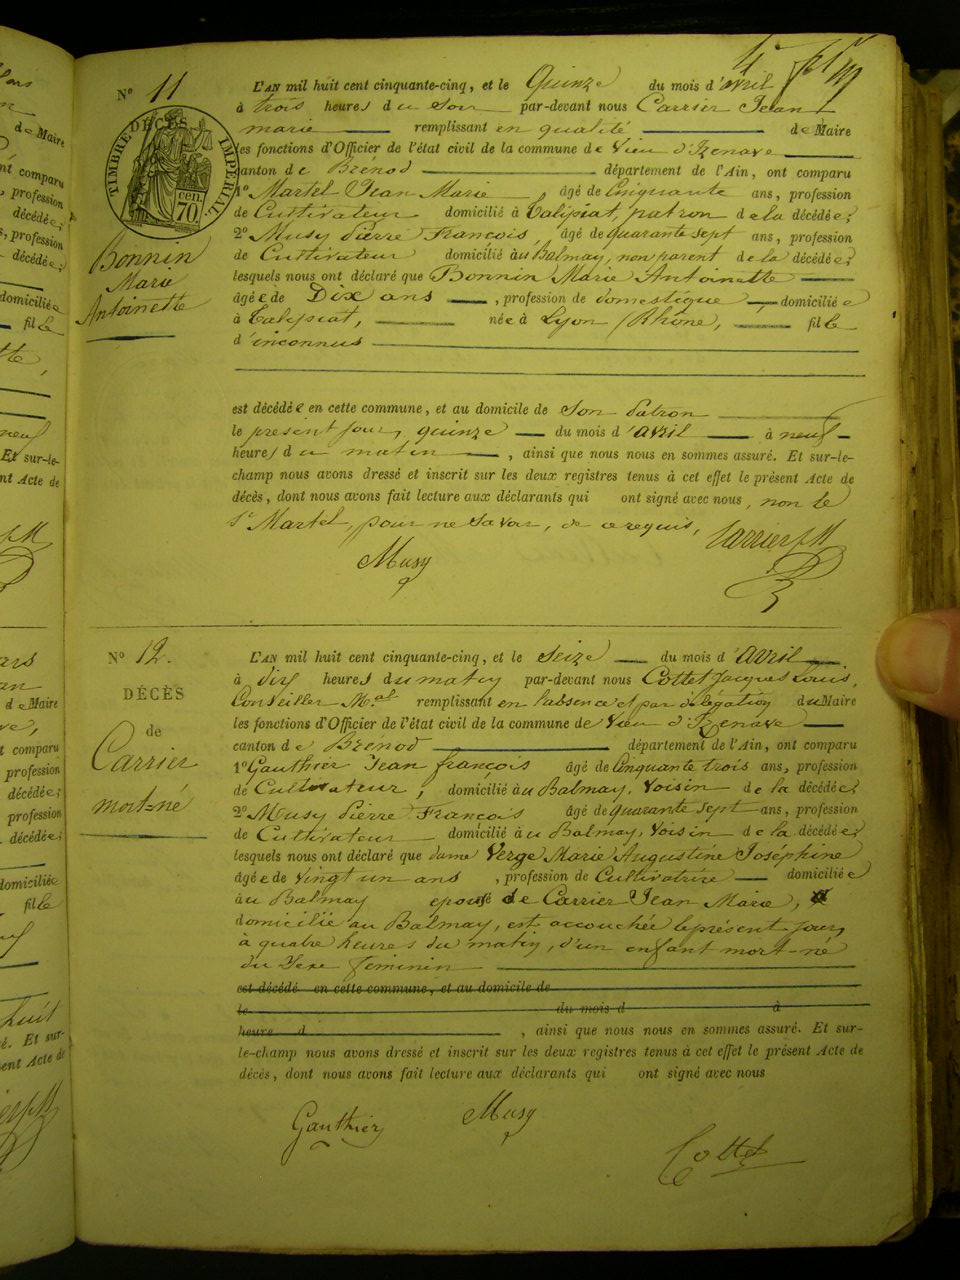 N° 11
L'AN mil huit cent cinquante-cinq, et le Quinze du mois d'avril
à trois heures du soir par-devant nous Carrier Jean
marie remplissant en qualité de Maire
les fonctions d'Officier de l'état civil de la commune de Vieu d'Izenave
canton de Brénod département de l'Ain, ont comparu
1° Martel Jean Marie âgé de Cinquante ans, profession
de Cultivateur domicilié à Talipiat, patron de la décédée;
2° Musy Pierre François, âgé de quarante sept ans, profession
de Cultivateur domicilié au Balmay, non parent de la décédée;
lesquels nous ont déclaré que Bonnin Marie Antoinette
âgée de Dix ans, profession de domestique, domiciliée
à Talipiat, née à Lyon (Rhône), fille
d'inconnus
est décédée en cette commune, et au domicile de son Patron
le présent jour, quinze du mois d'avril à neuf
heures du matin, ainsi que nous nous en sommes assuré. Et sur-le-
champ nous avons dressé et inscrit sur les deux registres tenus à cet effet le présent Acte de
décès, dont nous avons fait lecture aux déclarants qui ont signé avec nous, non le
s.r Martel, pour ne savoir, de ce requis,
Carrier J M
Musy
TIMBRE IMPÉRIAL.
DÉCÈS
70 cen.
Bonnin
Marie
Antoinette
N° 12.
DÉCÈS
de
Carrier
mort-né
L'AN mil huit cent cinquante-cinq, et le seize du mois d'avril
à dix heures du matin par-devant nous Cottet Jacques Louis,
Conseiller M.al remplissant en l'absence et par délégation du Maire
les fonctions d'Officier de l'état civil de la commune de Vieu d'Izenave
canton de Brénod département de l'Ain, ont comparu
1° Gauthier Jean françois âgé de Cinquante trois ans, profession
de Cultivateur, domicilié au Balmay, Voisin de la décédée;
2° Musy Pierre François âgé de quarante sept ans, profession
de Cultivateur domicilié au Balmay, Voisin de la décédée;
lesquels nous ont déclaré que dame Verge Marie Augustine Joséphine
âgée de Vingt un ans, profession de Cultivatrice domiciliée
au Balmay épouse de Carrier Jean Marie,
domicilié au Balmay, est accouchée le présent jour,
à quatre heures du matin, d'un enfant mort-né
du Sexe féminin
est décédé en cette commune, et au domicile de
le du mois d à
heure d, ainsi que nous nous en sommes assuré. Et sur-
le-champ nous avons dressé et inscrit sur les deux registres tenus à cet effet le présent Acte de
décès, dont nous avons fait lecture aux déclarants qui ont signé avec nous
Gauthier
Musy
Cottet